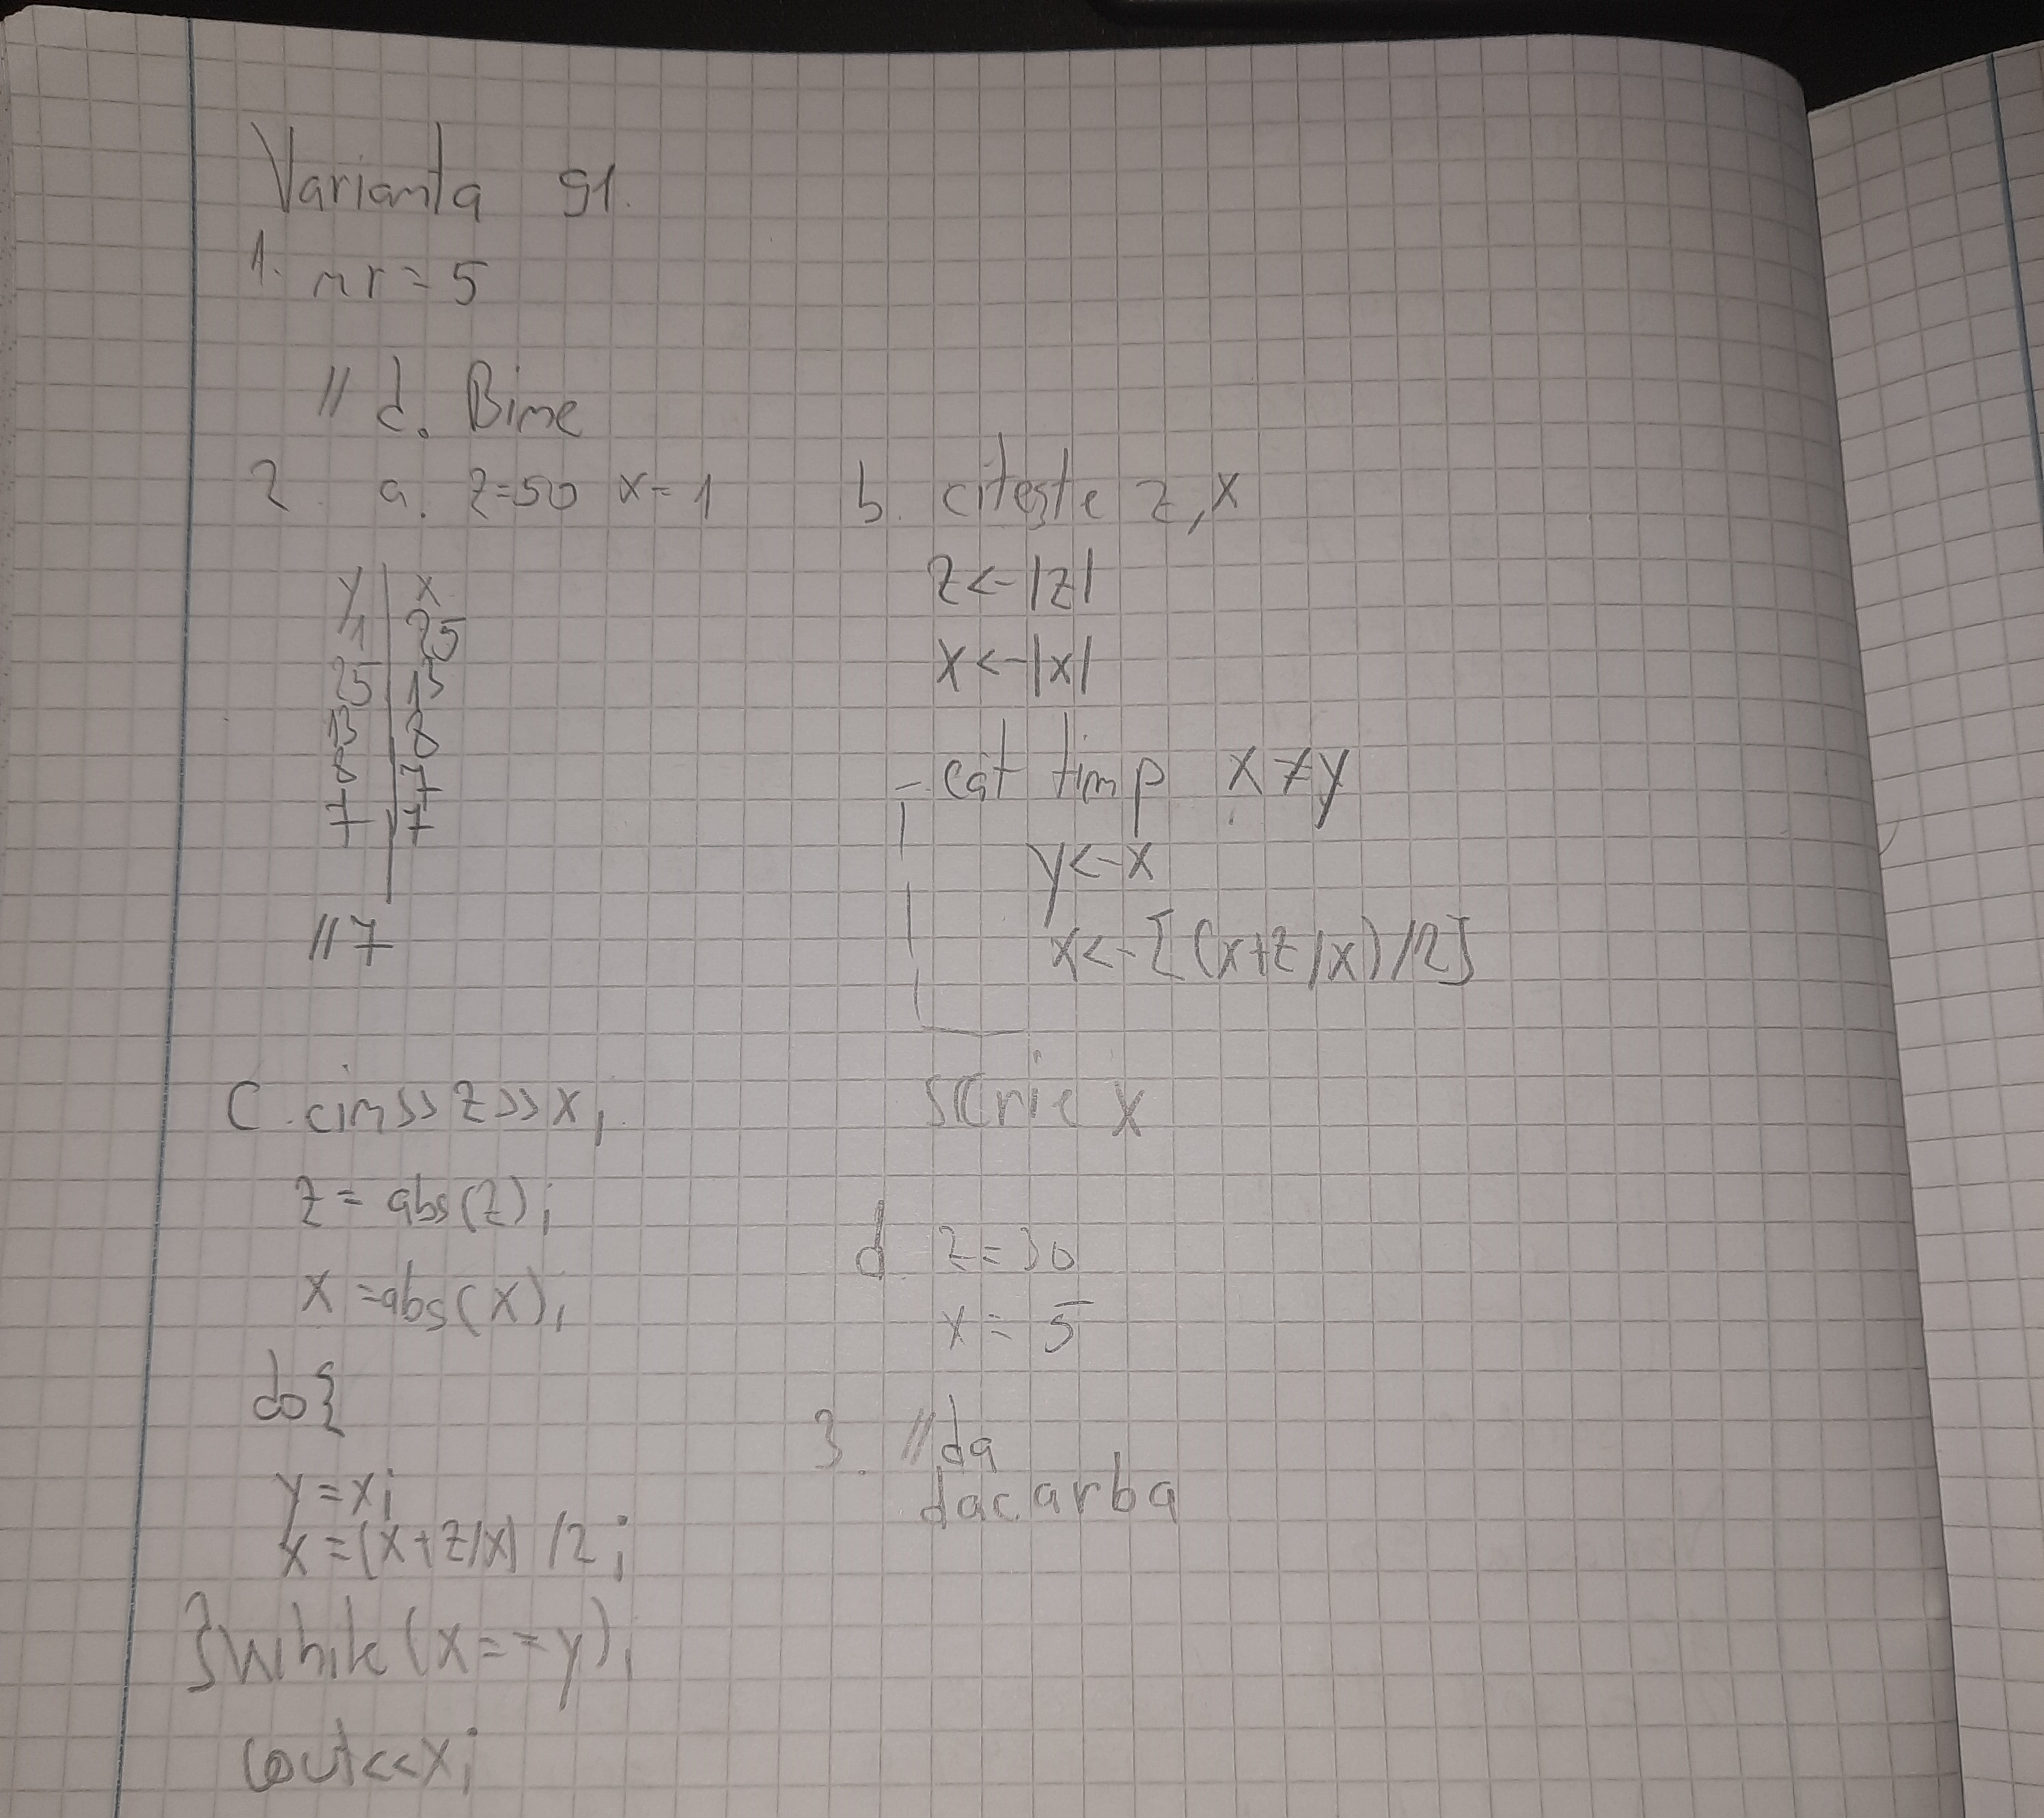 Varianta 91.
1. nr = 5
// d. Bine
2. a. z=50 x=1
y | x
1 | 25
25 | 13
13 | 8
8 | 7
7 | 7
// 7
b. citeste z,x
z<-|z|
x<-|x|
cat timp x≠y
y<-x
x<-[(x+z/x)/2]
scrie x
c. cin>>z>>x;
z = abs(z);
x = abs(x);
do{
y=x;
x=(x+z/x) /2;
}while(x==y);
cout<<x;
d. z=30
x = 5
3. //da
dacarba